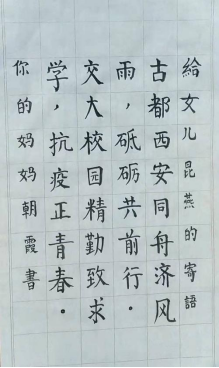 給女儿昆燕的寄語
古都西安同舟济风
雨，砥砺共前行．
交大校园精勤致求
学，抗疫正青春．
你的妈妈朝霞書